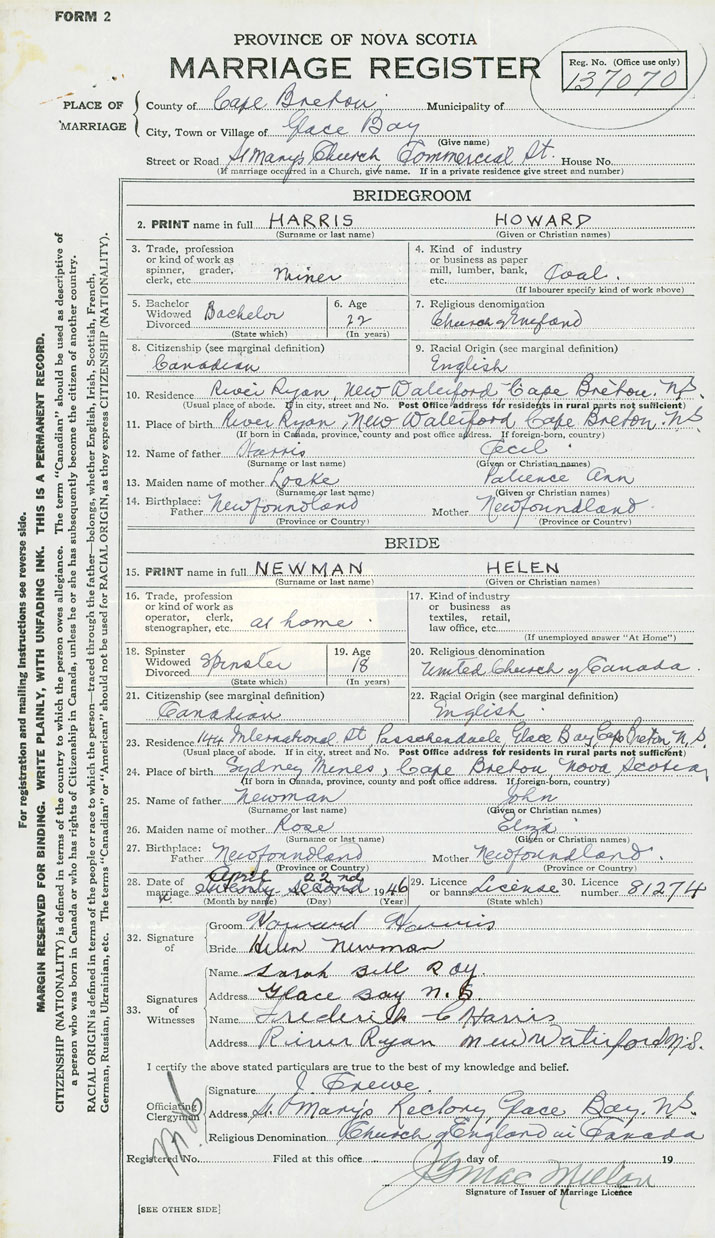 FORM 2
PROVINCE OF NOVA SCOTIA
MARRIAGE REGISTER
Reg. No. (Office use only)
137070
PLACE OF MARRIAGE
County of Cape Breton Municipality of
City, Town or Village of Glace Bay
(Give name)
Street or Road St Mary's Church Commercial St. House No.
(If marriage occurred in a Church, give name. If in a private residence give street and number)
BRIDEGROOM
2. PRINT name in full HARRIS HOWARD
(Surname or last name) (Given or Christian names)
3. Trade, profession or kind of work as spinner, grader, clerk, etc. Miner
4. Kind of industry or business as paper mill, lumber, bank, etc. Coal.
(If labourer specify kind of work above)
5. Bachelor Widowed Divorced Bachelor
(State which)
6. Age 22
(In years)
7. Religious denomination
Church of England
8. Citizenship (see marginal definition)
Canadian
9. Racial Origin (see marginal definition)
English
10. Residence River Ryan, New Waterford, Cape Breton. N.S.
(Usual place of abode. If in city, street and No. Post Office address for residents in rural parts not sufficient)
11. Place of birth River Ryan, New Waterford Cape Breton. N.S
(If born in Canada, province, county and post office address. If foreign-born, country)
12. Name of father Harris Cecil
(Surname or last name) (Given or Christian names)
13. Maiden name of mother Patience Ann
(Surname or last name) (Given or Christian names)
14. Birthplace: Father Newfoundland Mother Newfoundland
(Province or Country) (Province or Country)
BRIDE
15. PRINT name in full NEWMAN HELEN
(Surname or last name) (Given or Christian names)
16. Trade, profession or kind of work as operator, clerk, stenographer, etc. at home
17. Kind of industry or business as textiles, retail, law office, etc.
(If unemployed answer "At Home")
18. Spinster Widowed Divorced Spinster
(State which)
19. Age 18
(In years)
20. Religious denomination
United Church of Canada.
21. Citizenship (see marginal definition)
Canadian
22. Racial Origin (see marginal definition)
English
23. Residence 144 International St, Passchendaele Glace Bay, Cape Breton N.S.
(Usual place of abode. If in city, street and No. Post Office address for residents in rural parts not sufficient)
24. Place of birth Sydney Mines, Cape Breton Nova Scotia
(If born in Canada, province, county and post office address. If foreign-born, country)
25. Name of father Newman John
(Surname or last name) (Given or Christian names)
26. Maiden name of mother Rose Eliza
(Surname or last name) (Given or Christian names)
27. Birthplace: Father Newfoundland Mother Newfoundland.
(Province or Country) (Province or Country)
28. Date of marriage April 22nd second 1946
(Month by name) (Day) (Year)
29. Licence or banns License
(State which)
30. Licence number 81274
32. Signature of
Groom Howard Harris
Bride Helen Newman
33. Signatures of Witnesses
Name Sarah Bell Roy.
Address Glace Bay N.S.
Name Frederick C Harris
Address River Ryan New Waterford N.S.
I certify the above stated particulars are true to the best of my knowledge and belief.
Officiating Clergyman
Signature J Frewe
Address St Mary's Rectory, Glace Bay. N.S.
Religious Denomination Church of England in Canada
Registered No. Filed at this office day of 19
Signature of Issuer of Marriage Licence
[SEE OTHER SIDE]
For registration and mailing instructions see reverse side.
MARGIN RESERVED FOR BINDING. WRITE PLAINLY, WITH UNFADING INK. THIS IS A PERMANENT RECORD.
CITIZENSHIP (NATIONALITY) is defined in terms of the country to which the person owes allegiance. The term "Canadian" should be used as descriptive of
a person who was born in Canada or who has rights of Citizenship in Canada, unless he or she has subsequently become the citizen of another country.
RACIAL ORIGIN is defined in terms of the people or race to which the person—traced through the father—belongs, whether English, Irish, Scottish, French,
German, Russian, Ukrainian, etc. The terms "Canadian" or "American" should not be used for RACIAL ORIGIN, as they express CITIZENSHIP (NATIONALITY).